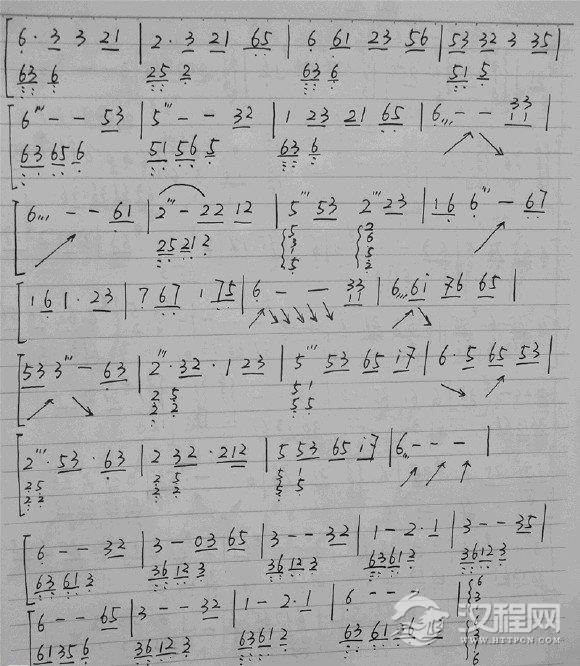 6· 3 3 21 | 2· 3 21 65 | 6 61 23 56 | 53 32 3 35 |
63 6 25 2 63 6 51 5
6''' - - 53 | 5''' - - 32 | 1 23 21 65 | 6,,, - - 33 |
63 65 6 51 56 5 63 6 11
6,,, - - 61 | 2''' - 22 12 | 5''' 53 2''' 23 | 16 6''' - 67
25 21 2 5 3 1 5 2 6 5 2
16 1· 23 | 7 67 1 75 | 6 - - 33 | 6,,, 61 76 65 |
11
53 3''' - 63 | 2''' · 32 · 1 23 | 5''' 53 65 i7 | 6· 5 65 53 |
2 5 5 1
2 2 5 5
2''' · 53 · 63 | 2 32 · 212 | 5 53 65 i7 | 6,, - - - |
25 2 5 5 1
22 2 2 5 5
6 - - 32 | 3 - 03 65 | 3 - - 32 | 1 - 2· 1 | 3 - - 35 |
63 61 2 36 12 3 36 12 3 63 61 2 36 12 3
6 - - 65 | 3 - - 32 | 1 - 2· 1 | 6 - -
61 35 6 36 12 3 63 61 2 63 61
汉程网
WWW.HTTPCN.COM